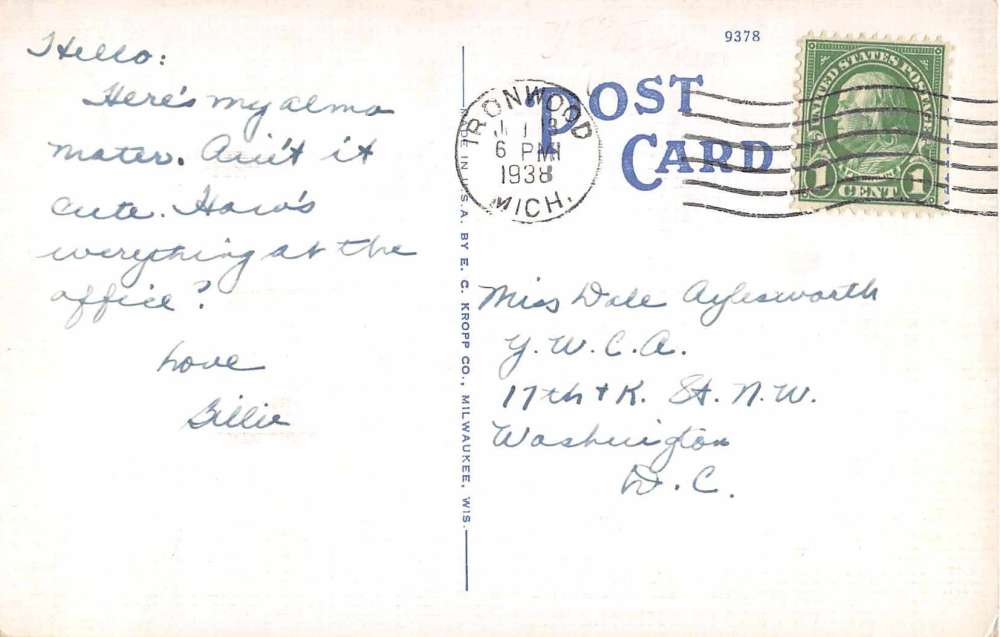 Hello:
Here's my alma
mater. Ain't it
cute. How's
everything at the
office?
Love
Billie
MADE IN U.S.A. BY E. C. KROPP CO., MILWAUKEE, WIS.
9378
POST
CARD
IRONWOOD
6 PM
1938
MICH.
UNITED STATES POSTAGE
1 CENT 1
Miss Dale Aylesworth
Y.W.C.A.
17th + K. St. N.W.
Washington
D.C.